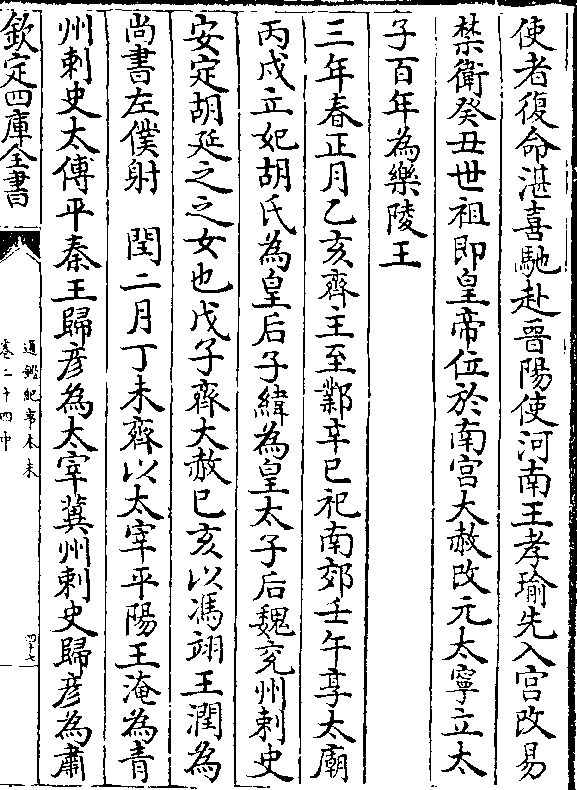 使者復命湛喜馳赴晉陽使河南王孝瑜先入宫改易
禁衛癸丑世祖即皇帝位於南宫大赦改元太寧立太
子百年為樂陵王
三年春正月乙亥齊主至鄴辛巳祀南郊壬午享太廟
丙戌立妃胡氏為皇后子緯為皇太子后魏兖州刺史
安定胡延之之女也戊子齊大赦己亥以馮翊王潤為
尚書左僕射　閏二月丁未齊以太宰平陽王淹為青
州刺史太傅平秦王歸彥為太宰冀州刺史歸彥為肅
欽定四庫全書
通鑑紀事本末
卷二十四中
四十七